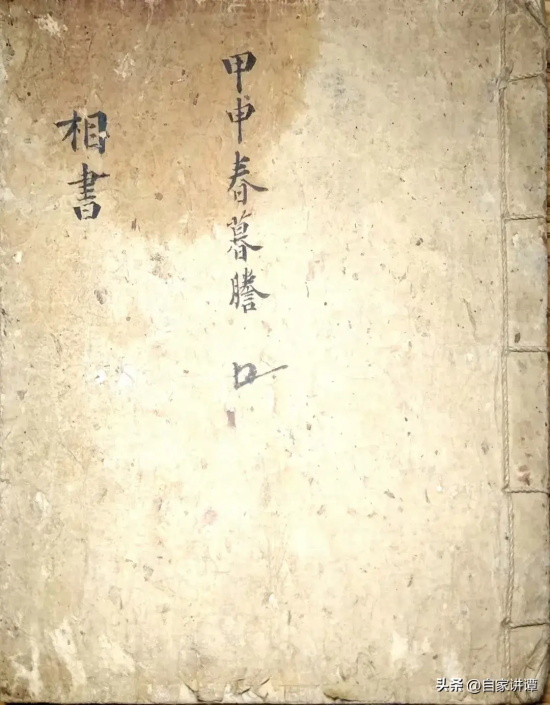 甲申春暮謄
相書
头条 @自家讲谭